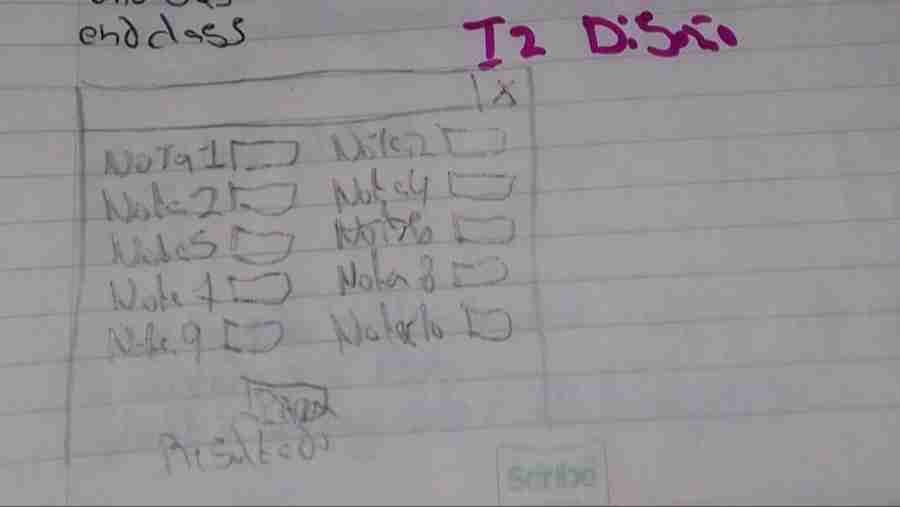 endclass
I2 Diseño
X
Nota 1 Nota 2
Nota 2 Nota 4
Nota 5
Nota 7 Nota 8
Nota 9 Nota 10
Resultado
Scribe